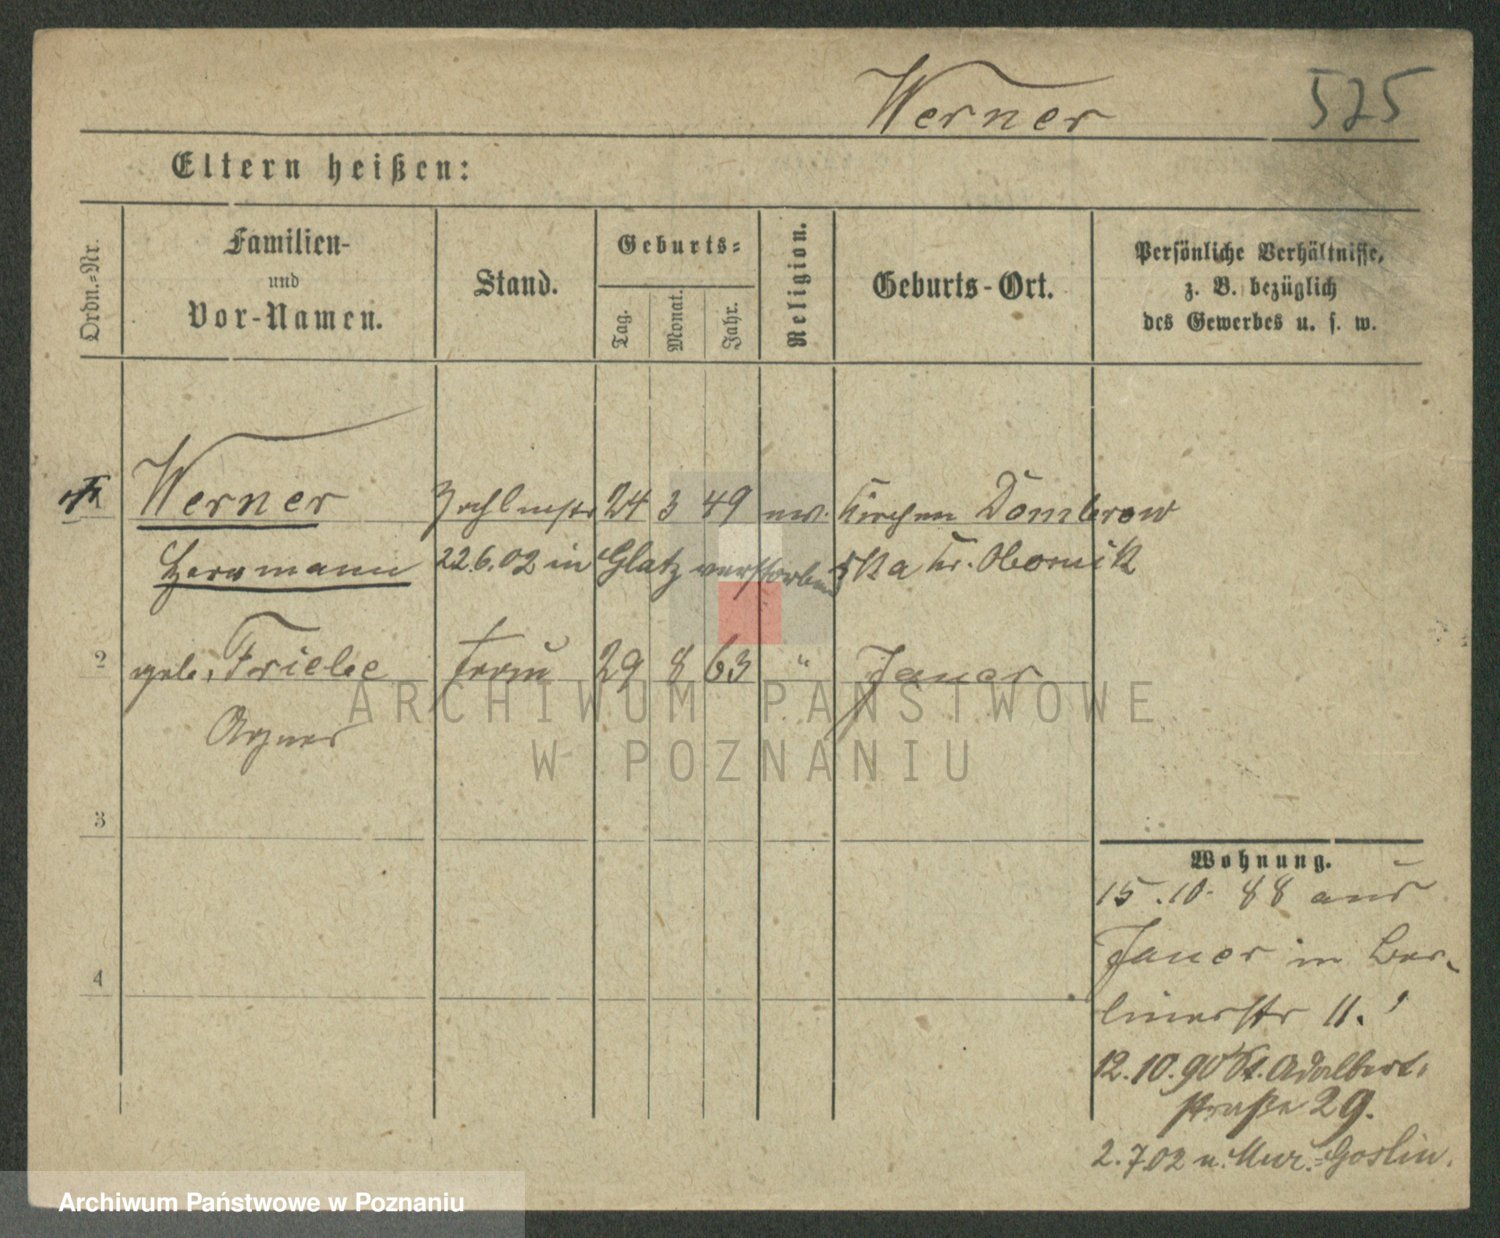 Werner 525
Eltern heißen:
Ordn.-Nr.
Familien-
und
Vor-Namen.
Stand.
Geburts-
Tag.
Monat.
Jahr.
Religion.
Geburts-Ort.
Persönliche Verhältnisse,
z. B. bezüglich
des Gewerbes u. s. w.
Werner Zahlmstr 24 3 49 ev. Kirchen Dombrow
Herrmann 22.6.02 in Glatz verstorben ka Kr. Obornik
2 geb. Friebe Frau 29 8 63 " Jauer
Agnes
3
4
Wohnung.
15.10. 88 aus
Jauer in Ber-
linerstr 11.
12.10.90 St. Adalbert-
straße 29.
2.7.02 n. Mur.-Goslin.
ARCHIWUM PAŃSTWOWE
W POZNANIU
Archiwum Państwowe w Poznaniu